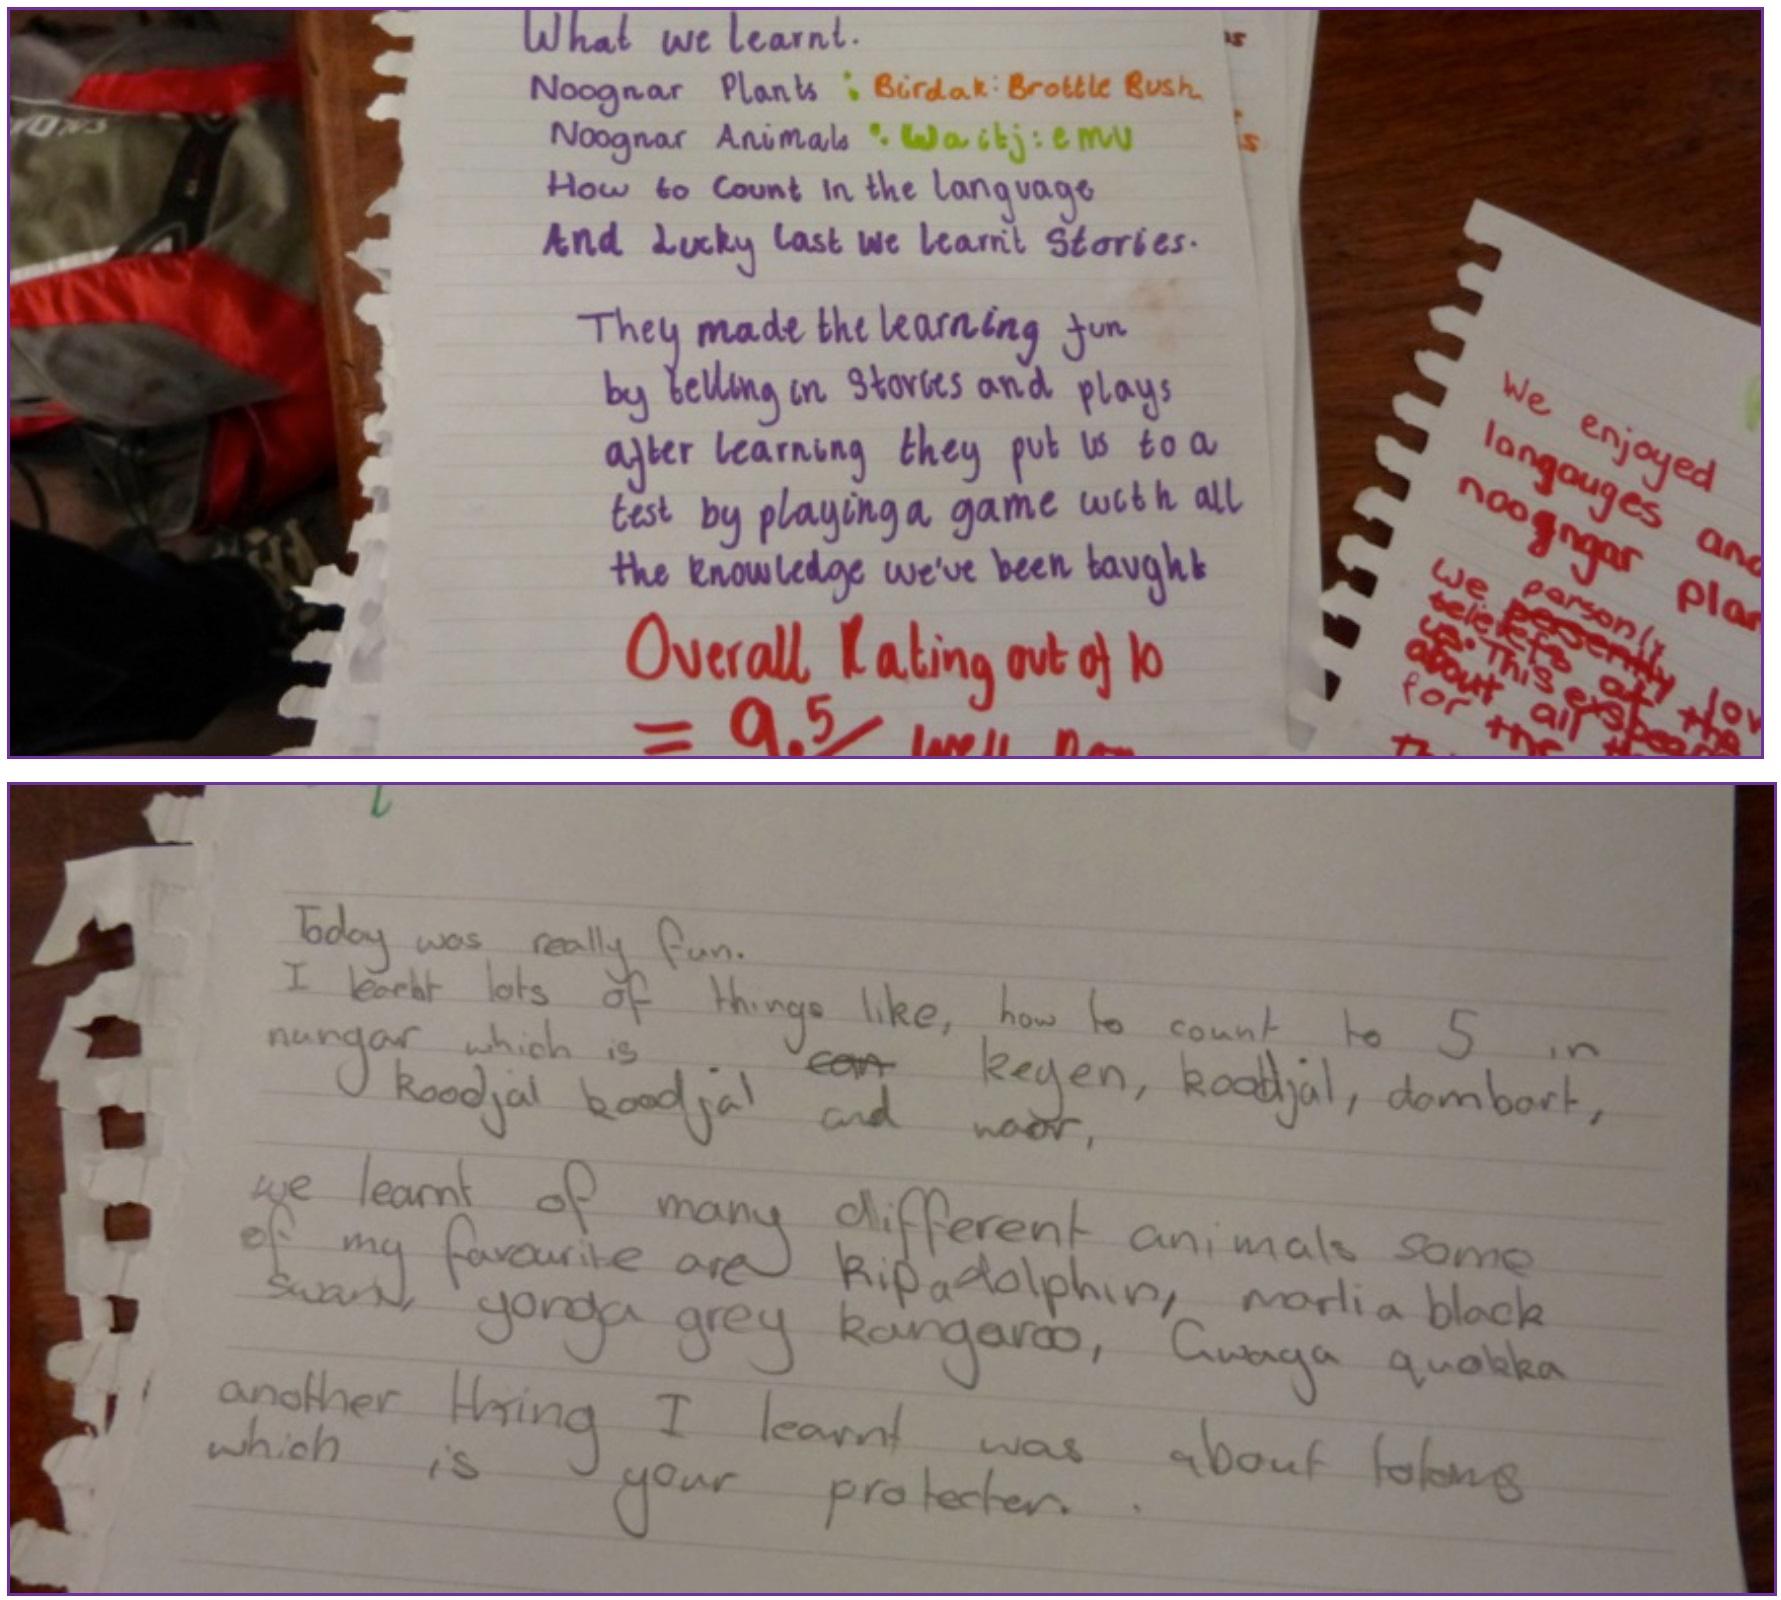 What we learnt.
Noognar Plants : Birdak: Brottle Bush
Noognar Animals : Waitj: emu
How to Count in the language
And Lucky last we learnt Stories.
They made the learning fun
by telling in Stories and plays
after learning they put us to a
test by playing a game with all
the knowledge we've been taught
Overall Rating out of 10
= 9.5/ Well Don
We enjoyed
langauges and
noogngar plan
We parsonly
us. This
about all the
for the
Today was really fun.
I learnt lots of things like, how to count to 5 in
nungar which is keyen, koodjal, dambart,
koodjal koodjal and
we learnt of many different animals some
of my favourite are kipa dolphin, marlia black
swan, yonga grey kangaroo, Gwaga quokka
another thing I learnt was about totems
which is your protecter.